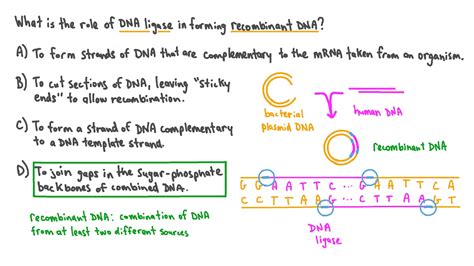 What is the role of DNA ligase in forming recombinant DNA?
A) To form strands of DNA that are complementary to the mRNA taken from an organism.
B) To cut sections of DNA, leaving "sticky
ends" to allow recombination.
C) To form a strand of DNA complementary
to a DNA template strand.
D) To join gaps in the sugar-phosphate
backbones of combined DNA.
recombinant DNA: combination of DNA
from at least two different sources
bacterial
plasmid DNA
human DNA
recombinant DNA
G G A A T T C ... G A A T T C A
C C T T A A G ... C T T A A G T
DNA
ligase